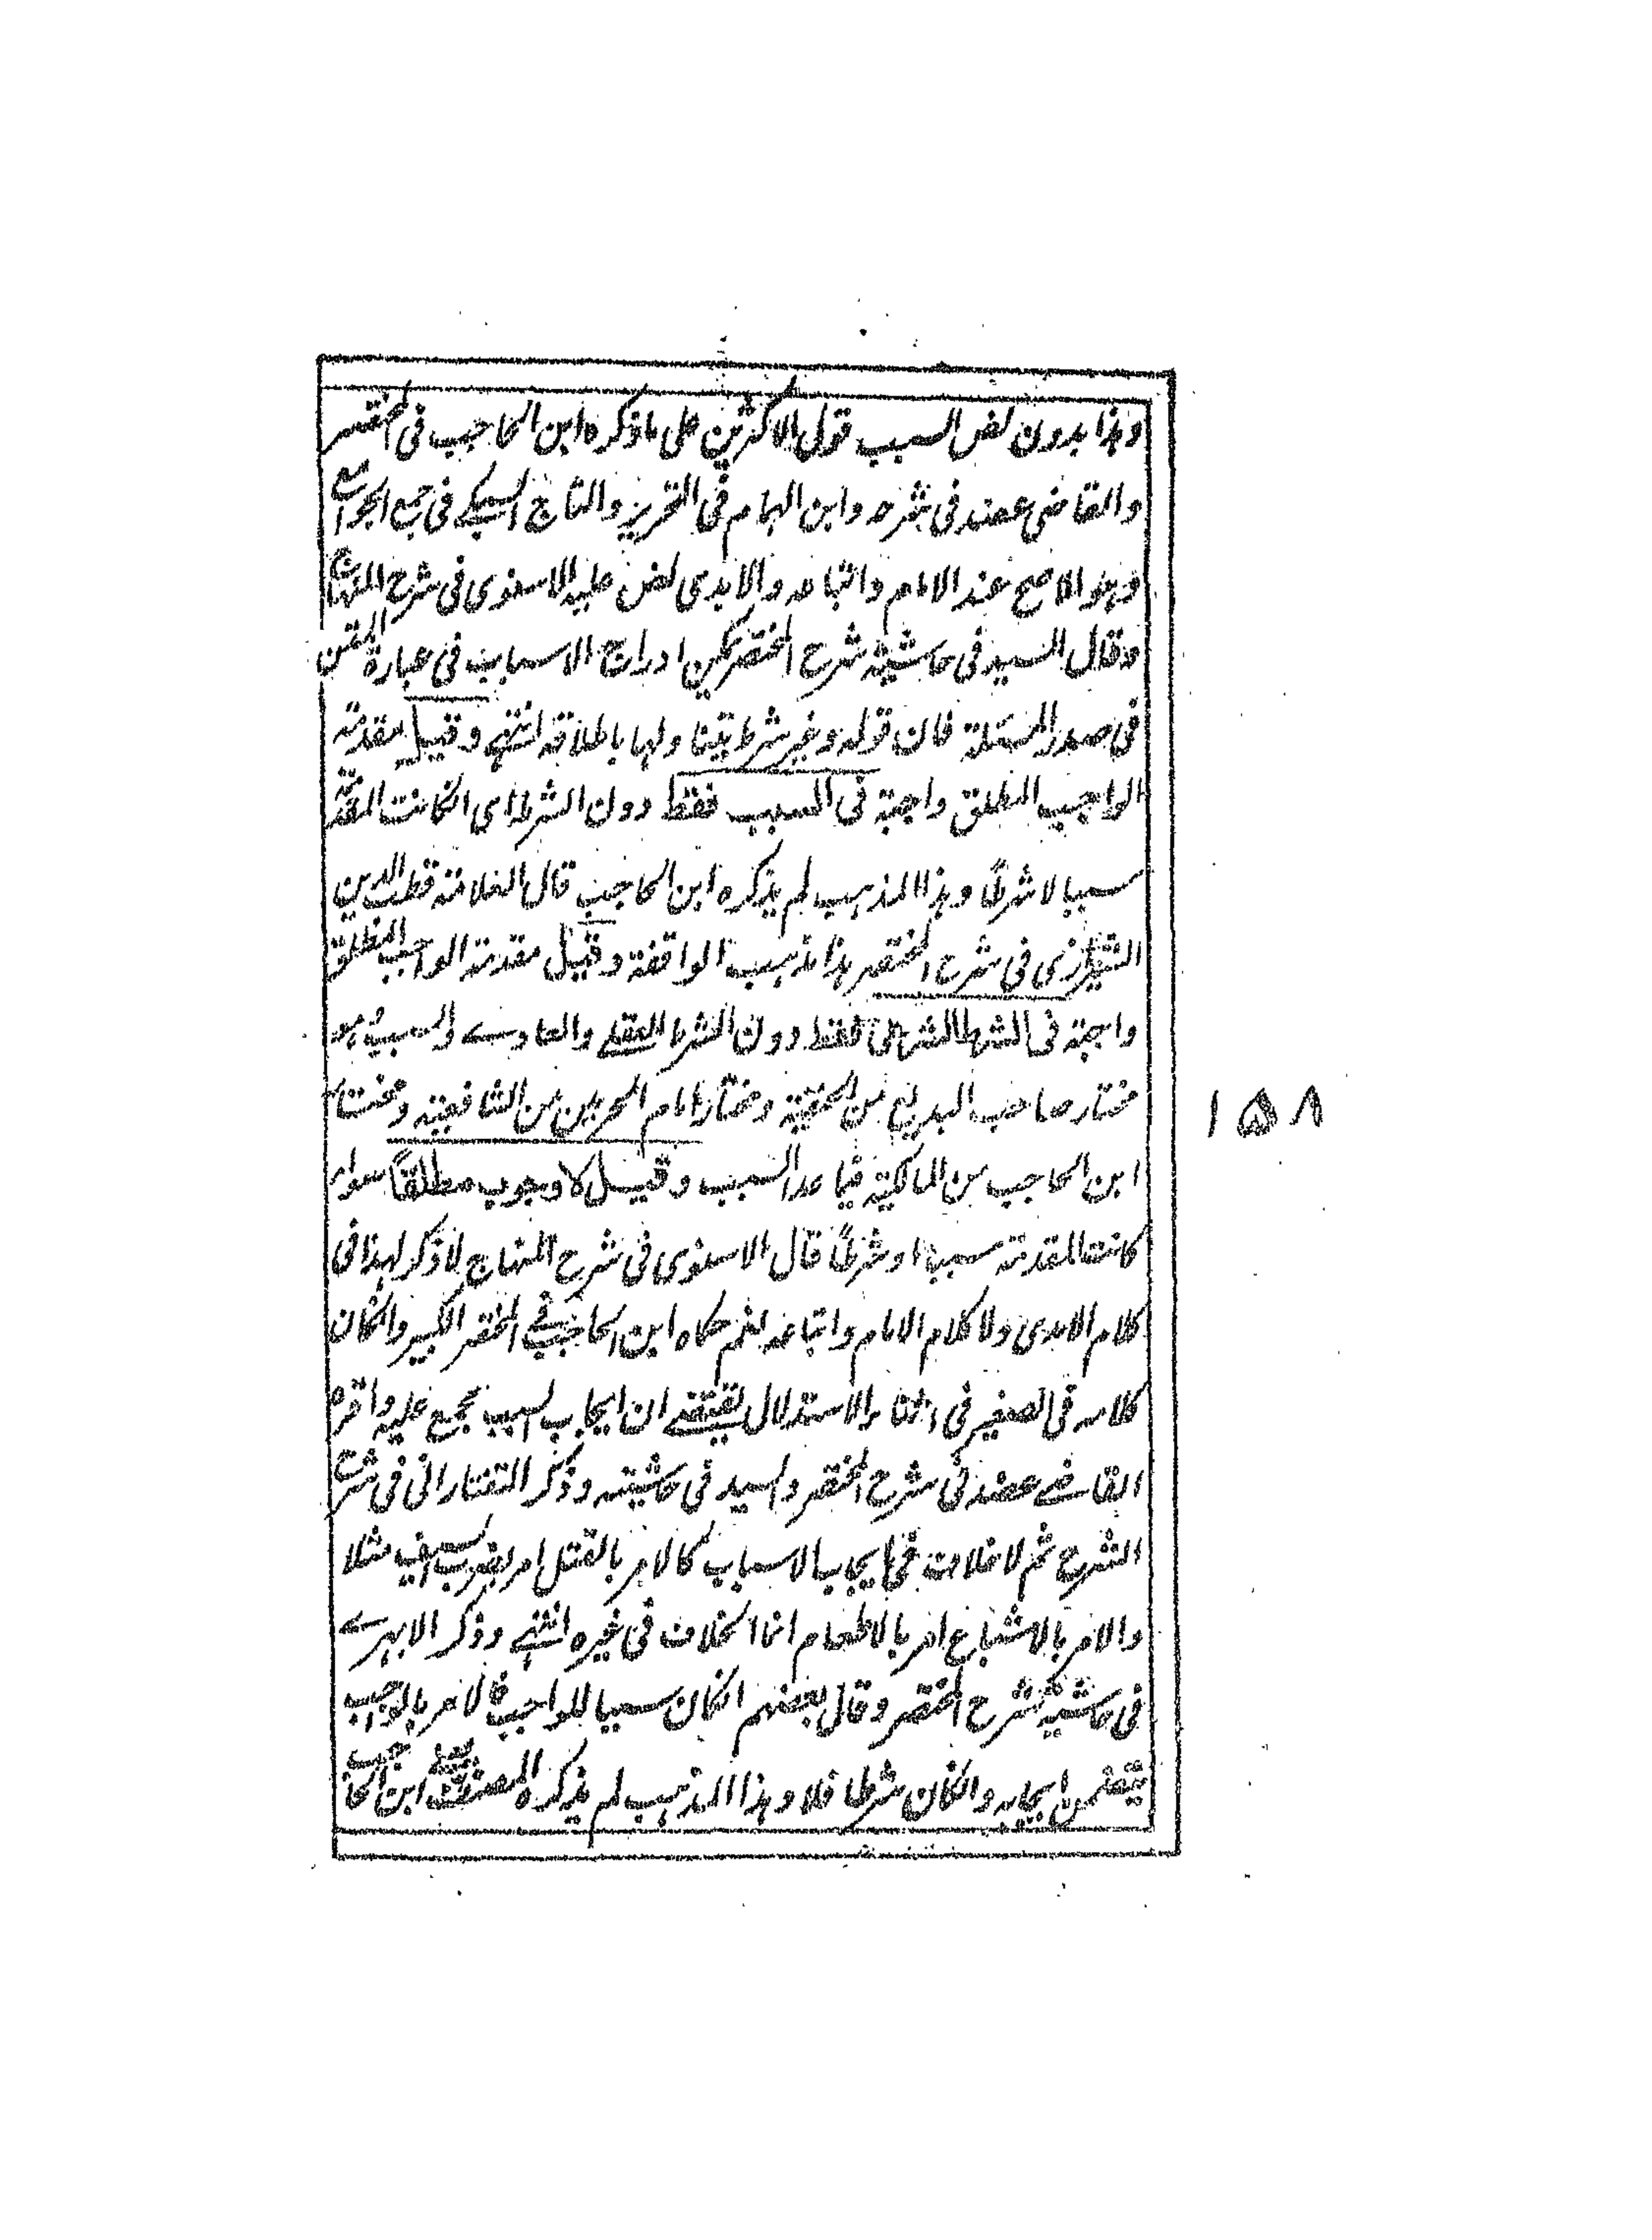 وهذا بدون نص السبب قول الاكثرين على ما ذكره ابن الحاجب فى المختصر
والقاضى عضد فى شرحه وابن الهمام فى التحرير والتاج السبكے فى جمع الجوامع
وهو الاصح عند الامام واتباعه والآمدى نص عليه الاسنوى فى شرح المنهاج
وقال السيد فى حاشية شرح المختصر يمكن ادراج الاسباب فى عبارة المتن
فى صدر المسئلة فان قوله وغير شرط يتناولها باطلاقه انتهے وقيل مقدمة
الواجب المطلق واجبة فى السبب فقط دون الشرط اى انكانت المقدمة
سببا لا شرطًا وهذا المذهب لم يذكره ابن الحاجب قال العلامة قطب الدين
الشيرازى فى شرح المختصر هذا مذهب الواقفة وقيل مقدمة الواجب المطلق
واجبة فى الشرط الشرعى فقط دون الشرط العقلے والعادے والسبب وهو
مختار صاحب البديع من الحنفية ومختار امام الحرمين من الشافعية ومختار
ابن الحاجب من المالكية فيما عدا السبب وقيل لا وجوب مطلقًا سواء
كانت المقدمة سببا او شرطًا قال الاسنوى فى شرح المنهاج لا ذكر لهذا فى
كلام الآمدى ولا كلام الامام واتباعه نعم حكاه ابن الحاجب فى المختصر الكبير وانكان
كلامه فى الصغير فى اثناء الاستدلال يقتضے ان ايجاب السبب مجمع عليه واقره
القاضے عضد فى شرح المختصر والسيد فى حاشيته وذكر التفتازانى فى شرح
الشرح ثم لا خلاف فى ايجاب الاسباب كالامر بالقتل امر بضرب السيف مثلا
والامر بالاشباع امر بالاطعام انما الخلاف فى غيره انتهے وذكر الابهرے
فى حاشية شرح المختصر وقال بعضهم انكان سببا للواجب فالامر بالواجب
يتضمن ايجابه وانكان شرطا فلا وهذا المذهب لم يذكره المصنف يعنے ابن الحاجب
١٥٨